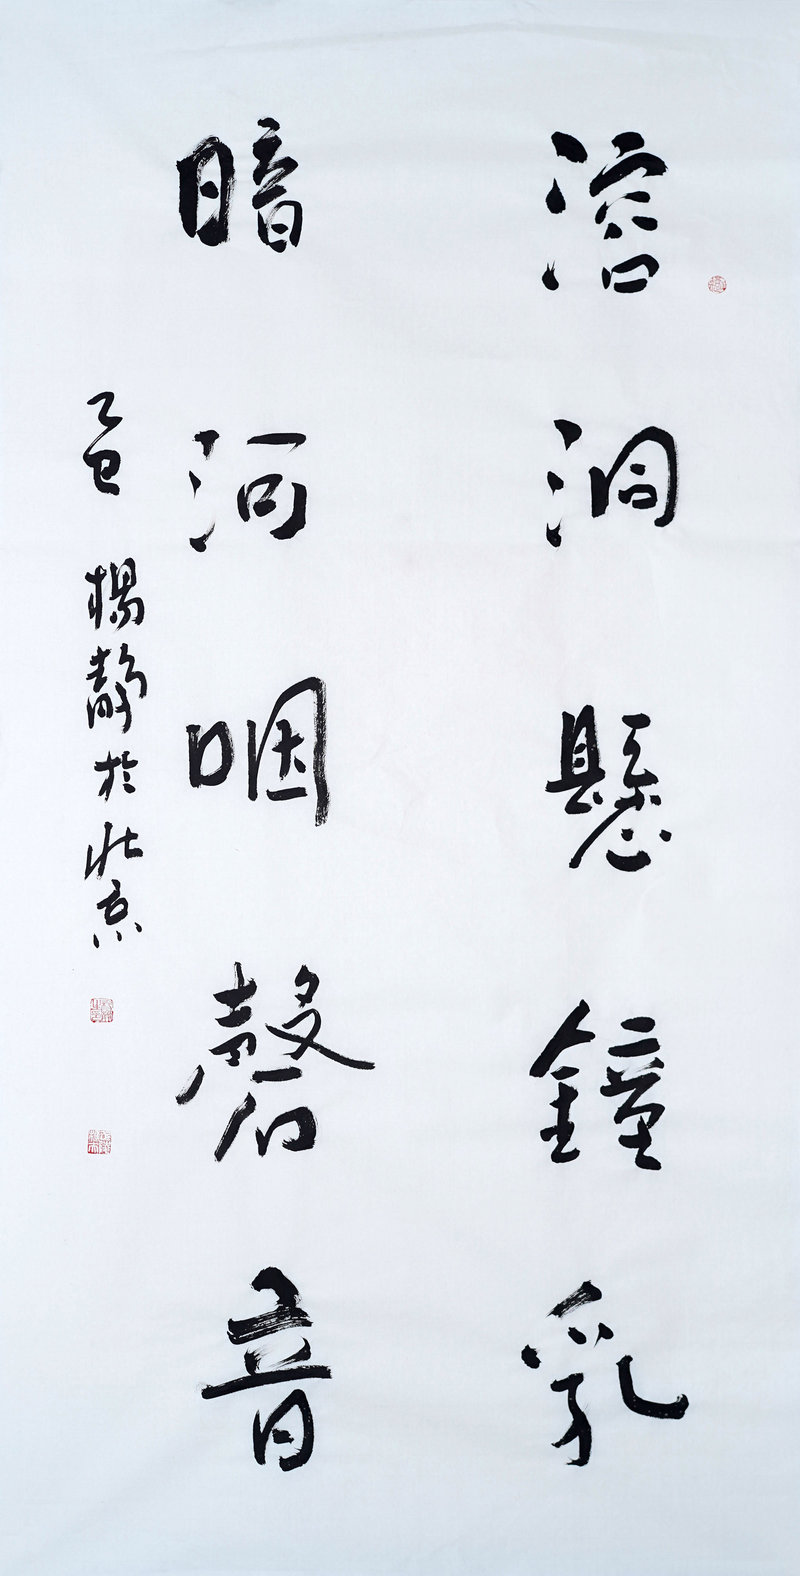 溶洞懸鐘乳
暗河咽磬音
乙巳 楊靜於北京